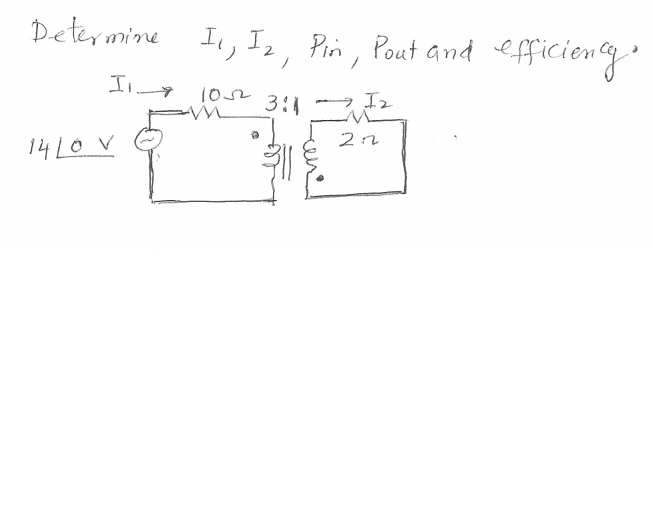 Determine I₁, I₂, Pin, Pout and efficiency.
I₁ → 10Ω 3:1 → I₂
14∠0 V 2Ω